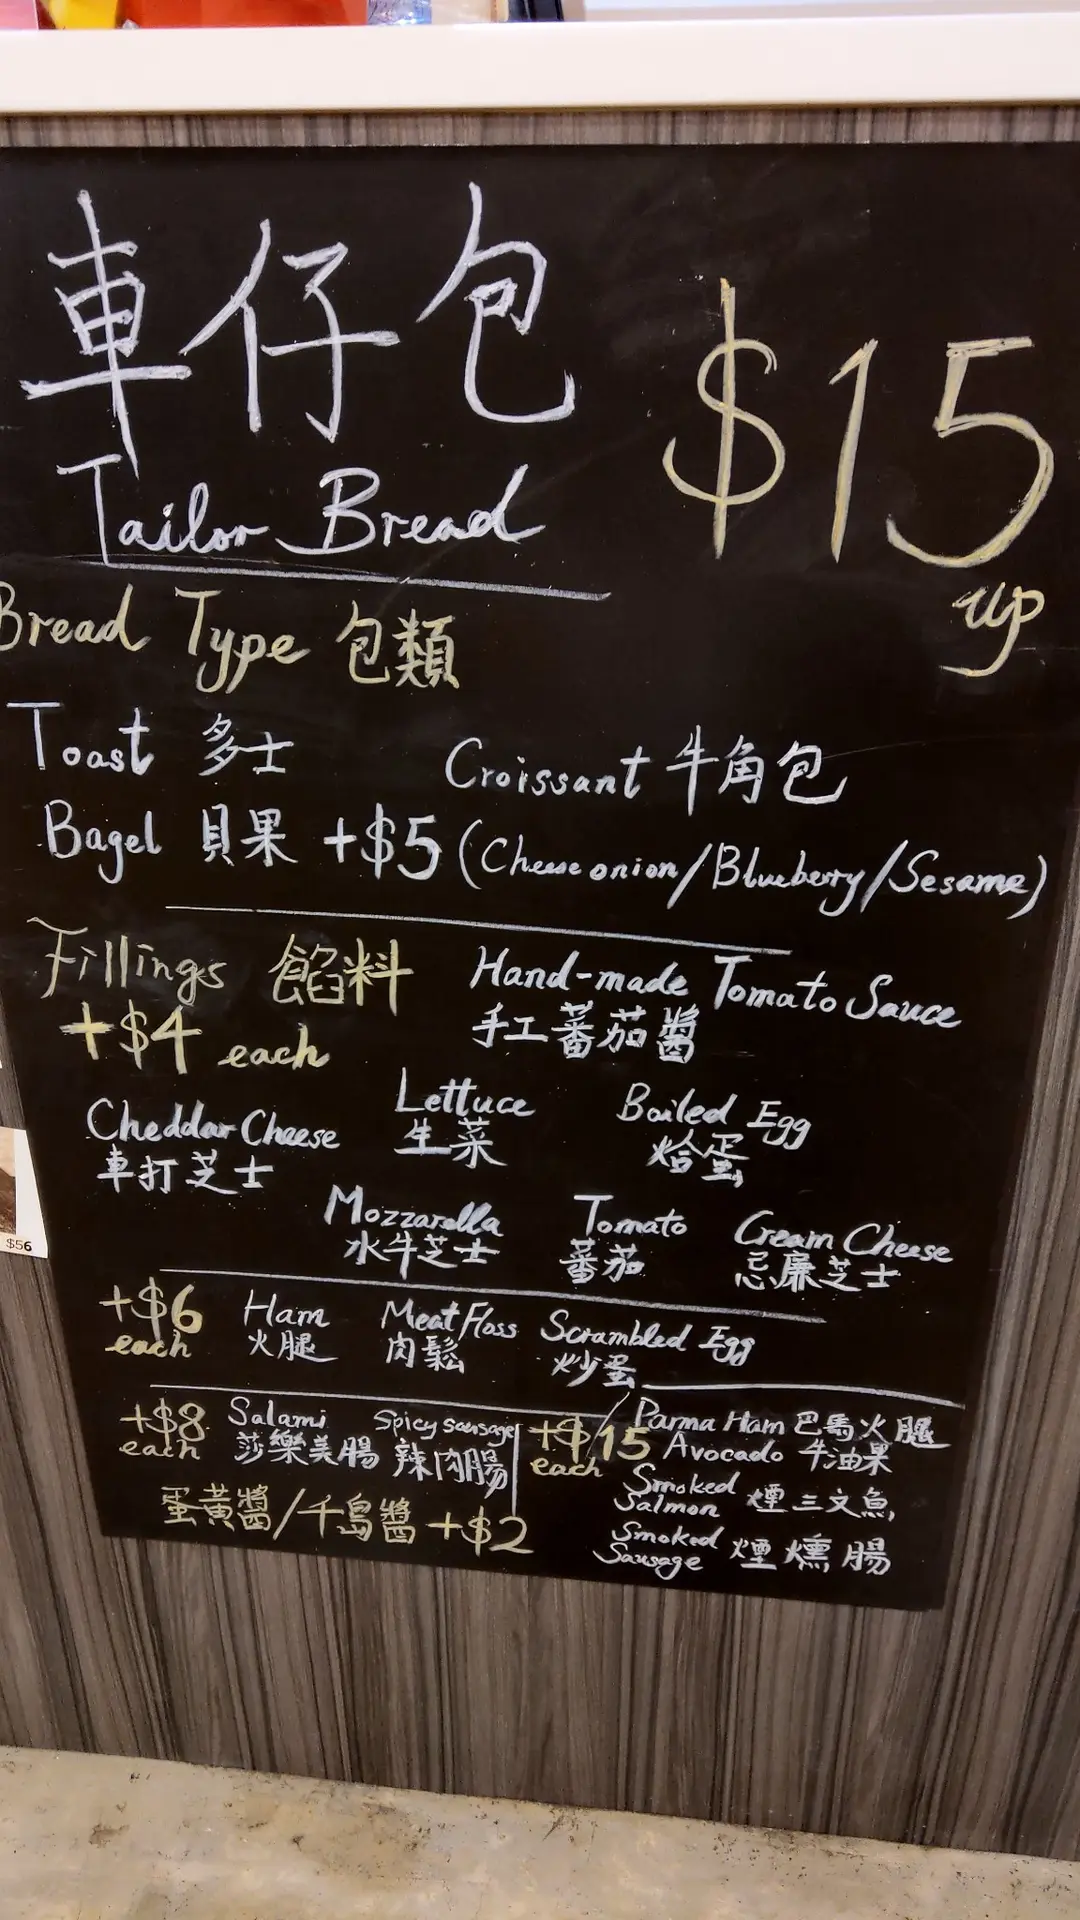 車仔包
$15
up
Tailor Bread
Bread Type 包類
Toast 多士
Croissant 牛角包
Bagel 貝果 +$5 (Cheese onion/Blueberry/Sesame)
Fillings 餡料
+$4 each
Hand-made Tomato Sauce
手工蕃茄醬
Cheddar Cheese
車打芝士
Lettuce
生菜
Boiled Egg
烚蛋
Mozzarella
水牛芝士
Tomato
蕃茄
Cream Cheese
忌廉芝士
+$6
each
Ham
火腿
Meat Floss
肉鬆
Scrambled Egg
炒蛋
+$8
each
Salami
莎樂美腸
Spicy sausage
辣肉腸
+$15
each
Parma Ham 巴馬火腿
Avocado 牛油果
Smoked
Salmon 煙三文魚
Smoked
Sausage 煙燻腸
蛋黃醬/千島醬 +$2
$56